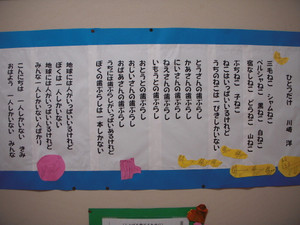 ひとつだけ 川崎 洋
三毛ねこ シャムねこ
ペルシャねこ 黒ねこ 白ねこ
宿なしねこ どらねこ 山ねこ
ぶちねこ 子ねこ
ねこはいっぱいいるけれど
うちのねこは一ぴきしかいない
とうさんの歯ぶらし
かあさんの歯ぶらし
にいさんの歯ぶらし
ねえさんの歯ぶらし
いもうとの歯ぶらし
おとうとの歯ぶらし
おじいさんの歯ぶらし
おばあさんの歯ぶらし
うちには歯ぶらしがいっぱいあるけれど
ぼくの歯ぶらしは一本しかない
地球には人がいっぱいいるけれど
ぼくは一人しかいない
地球には人がいっぱいいるけれど
みんな一人しかいない人ばかり
こんにちは 一人しかいない きみ
おはよう 一人しかいない みんな